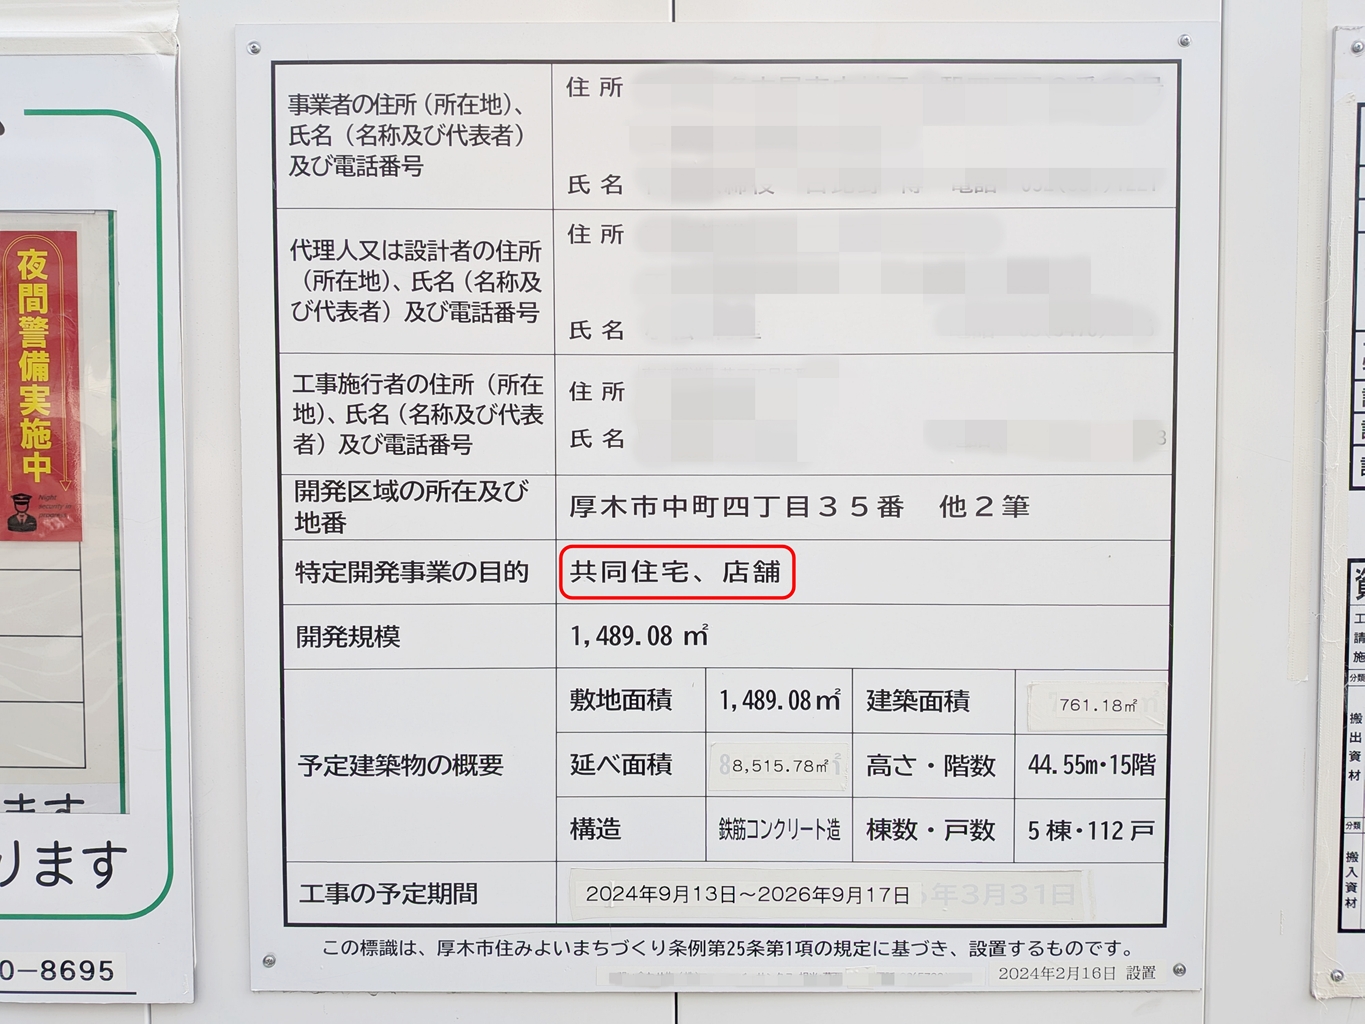 事業者の住所（所在地）、
氏名（名称及び代表者）
及び電話番号
住 所
氏 名
代理人又は設計者の住所
（所在地）、氏名（名称及
び代表者）及び電話番号
住 所
氏 名
工事施行者の住所（所在
地）、氏名（名称及び代表
者）及び電話番号
住 所
氏 名
開発区域の所在及び
地番
厚木市中町四丁目３５番　他２筆
特定開発事業の目的
共同住宅、店舗
開発規模
1,489.08 ㎡
予定建築物の概要
敷地面積 1,489.08㎡ 建築面積 761.18㎡
延べ面積 8,515.78㎡ 高さ・階数 44.55m・15階
構造 鉄筋コンクリート造 棟数・戸数 5 棟・112 戸
工事の予定期間
2024年9月13日～2026年9月17日
年3月31日
この標識は、厚木市住みよいまちづくり条例第25条第1項の規定に基づき、設置するものです。
2024年2月16日 設置
夜間警備実施中
Night
ます
ります
0-8695
搬出資材
分類
搬入資材